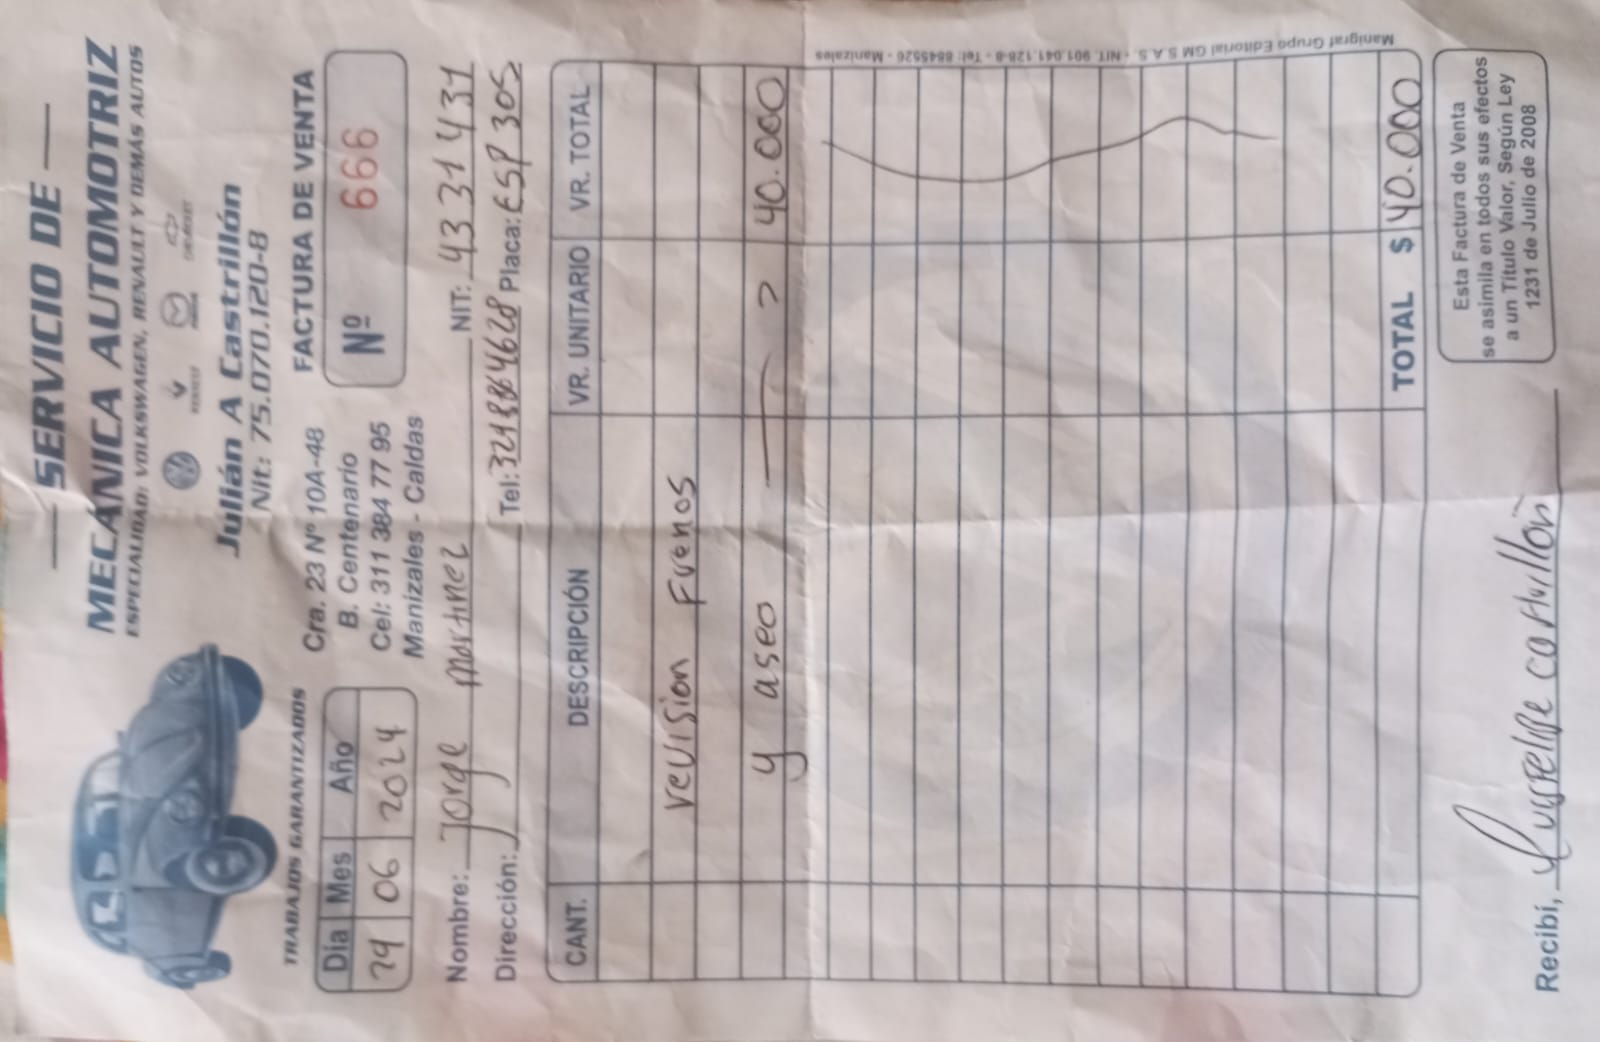 SERVICIO DE
MECÁNICA AUTOMOTRIZ
ESPECIALIDAD: VOLKSWAGEN, RENAULT Y DEMÁS AUTOS
RENAULT
CHEVROLET
Julián A Castrillón
Nit: 75.070.120-8
TRABAJOS GARANTIZADOS
Cra. 23 Nº 10A-48
B. Centenario
Cel: 311 384 77 95
Manizales - Caldas
FACTURA DE VENTA
Nº 666
Día Mes Año
29 06 2024
Nombre: Jorge Martinez NIT: 4331431
Dirección: Tel: Placa: ESP 305
CANT. DESCRIPCIÓN VR. UNITARIO VR. TOTAL
revision Frenos
y aseo 40.000
TOTAL $ 40.000
Recibí,
Esta Factura de Venta
se asimila en todos sus efectos
a un Título Valor, Según Ley
1231 de Julio de 2008
Manigraf Grupo Editorial GM S.A.S. - NIT. 901.041.128-8 - Tel: 8845526 - Manizales